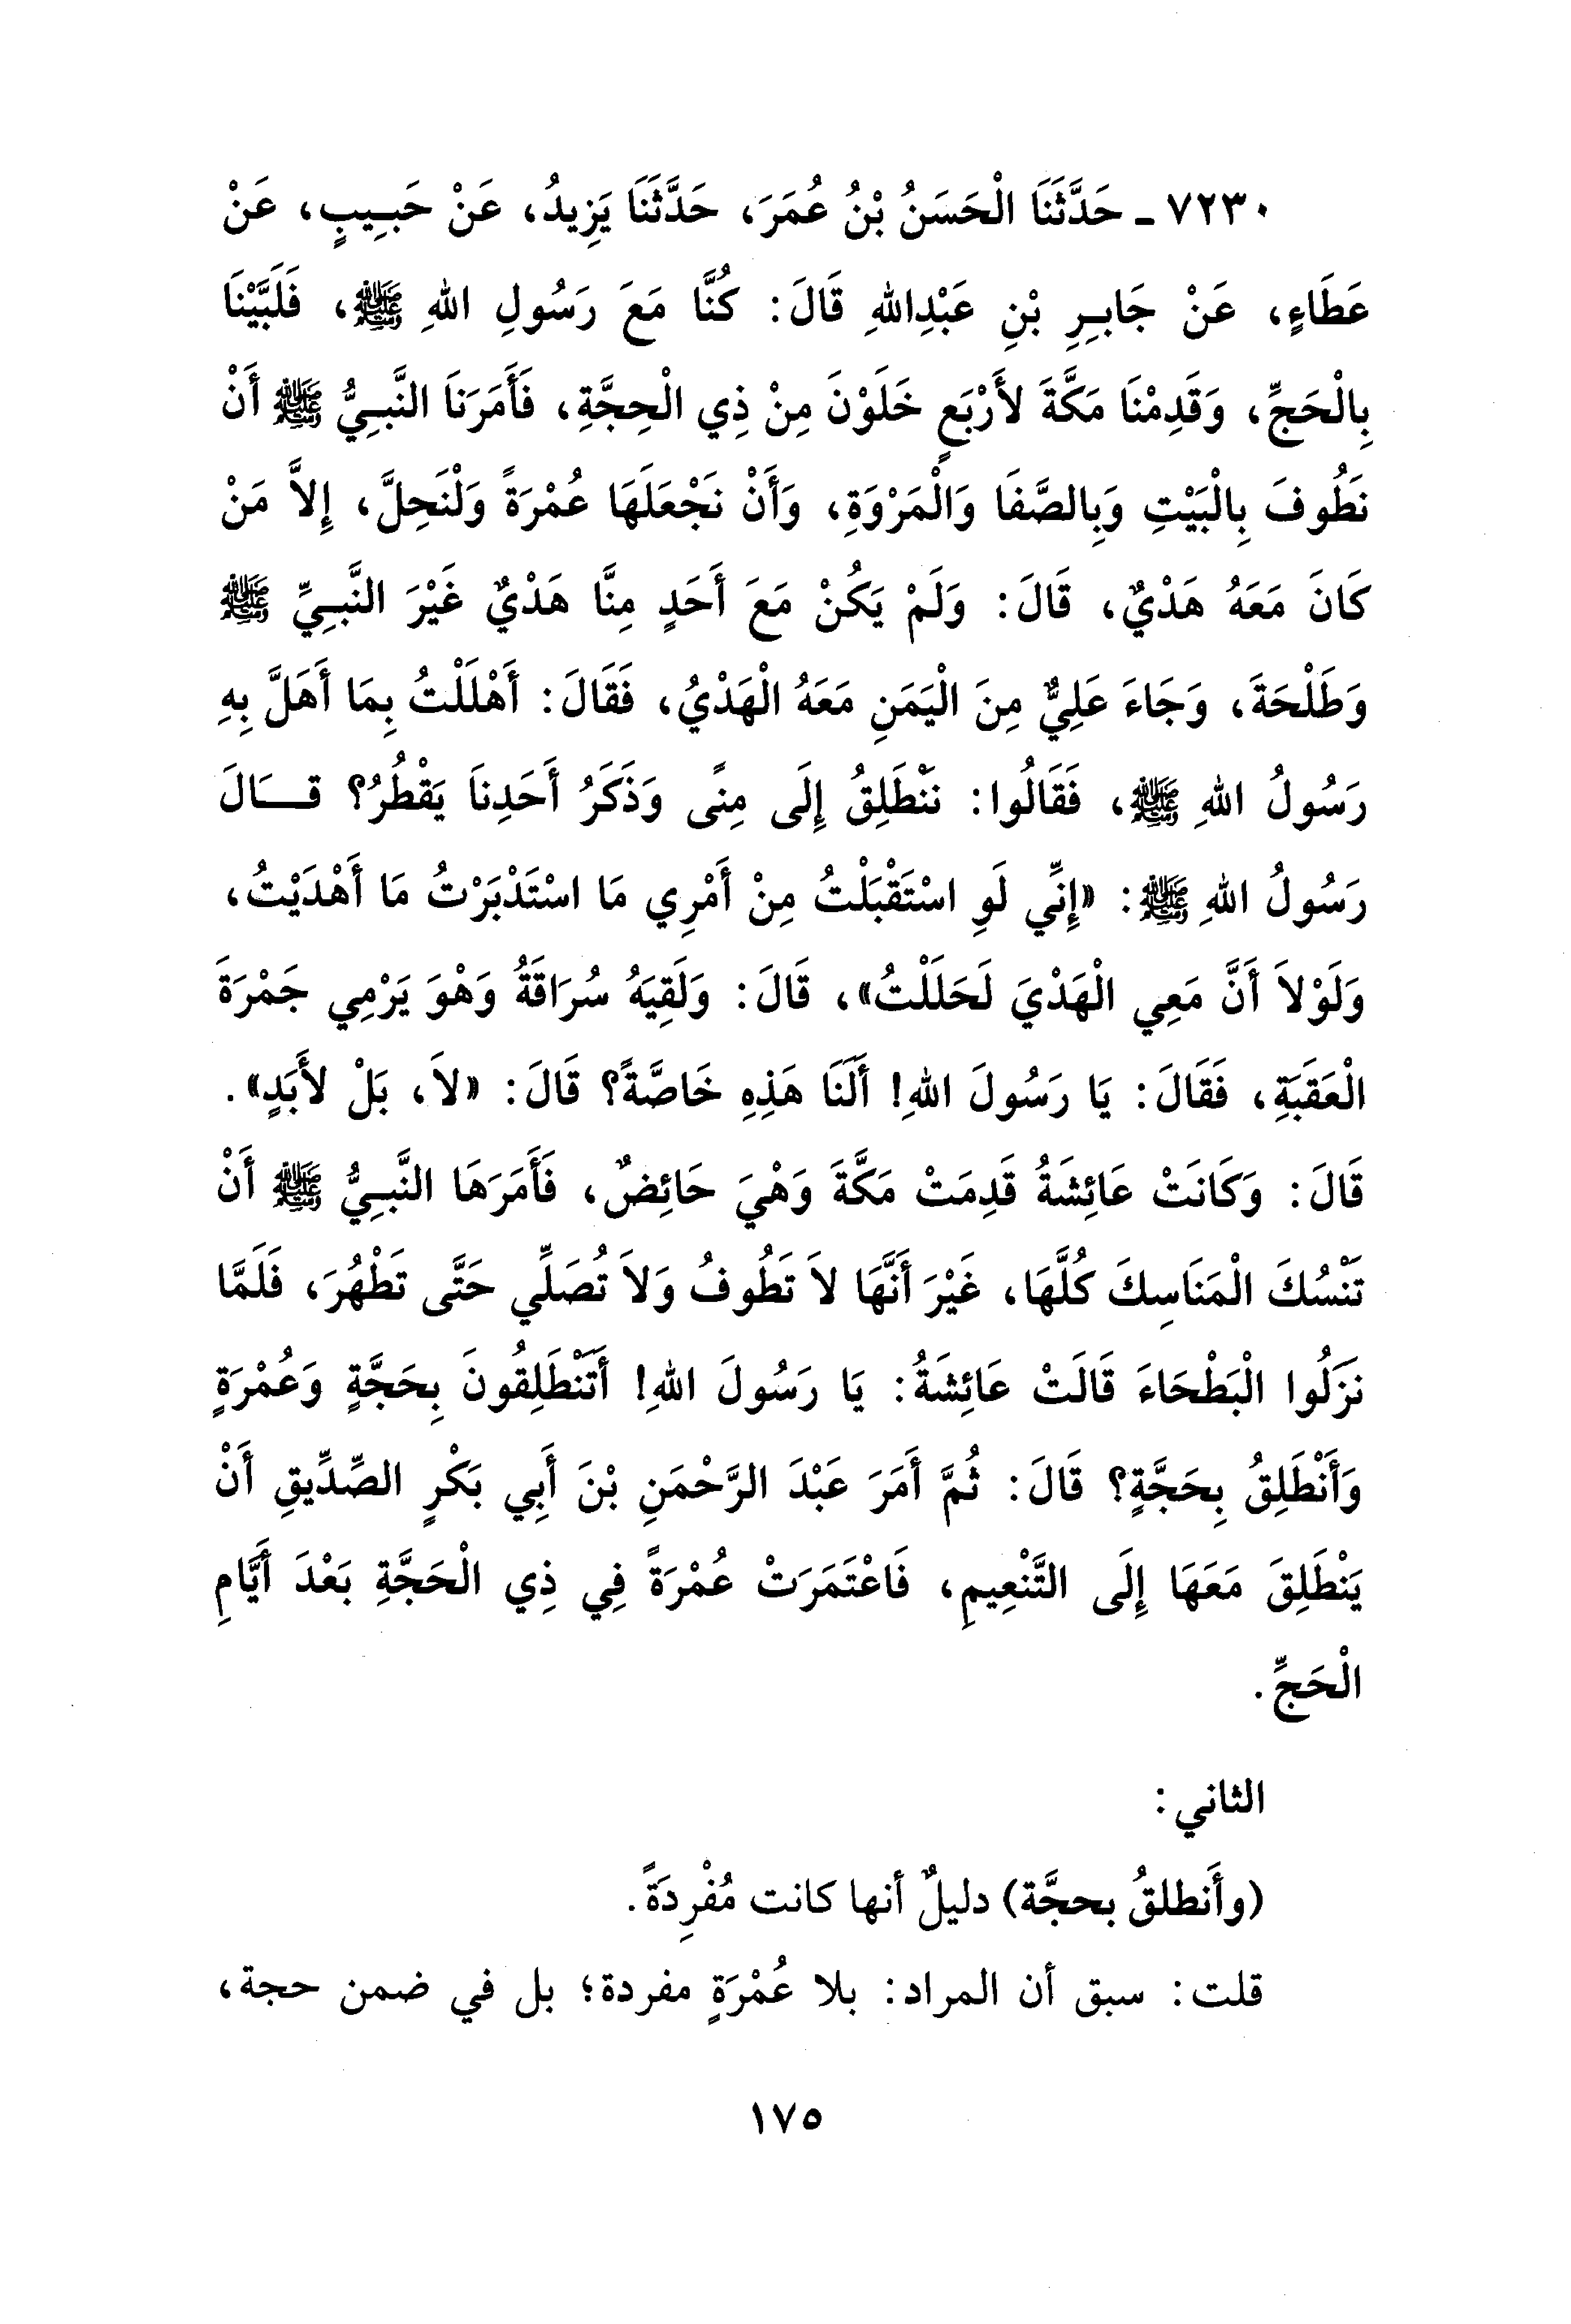 ٧٢٣٠ ـ حَدَّثَنَا الْحَسَنُ بْنُ عُمَرَ، حَدَّثَنَا يَزِيدُ، عَنْ حَبِيبٍ، عَنْ
عَطَاءٍ، عَنْ جَابِرِ بْنِ عَبْدِاللهِ قَالَ: كُنَّا مَعَ رَسُولِ اللهِ ﷺ، فَلَبَّيْنَا
بِالْحَجِّ، وَقَدِمْنَا مَكَّةَ لأَرْبَعٍ خَلَوْنَ مِنْ ذِي الْحِجَّةِ، فَأَمَرَنَا النَّبِيُّ ﷺ أَنْ
نَطُوفَ بِالْبَيْتِ وَبِالصَّفَا وَالْمَرْوَةِ، وَأَنْ نَجْعَلَهَا عُمْرَةً وَلْنَحِلَّ، إِلاَّ مَنْ
كَانَ مَعَهُ هَدْيٌ، قَالَ: وَلَمْ يَكُنْ مَعَ أَحَدٍ مِنَّا هَدْيٌ غَيْرَ النَّبِيِّ ﷺ
وَطَلْحَةَ، وَجَاءَ عَلِيٌّ مِنَ الْيَمَنِ مَعَهُ الْهَدْيُ، فَقَالَ: أَهْلَلْتُ بِمَا أَهَلَّ بِهِ
رَسُولُ اللهِ ﷺ، فَقَالُوا: نَنْطَلِقُ إِلَى مِنًى وَذَكَرُ أَحَدِنَا يَقْطُرُ؟ قَالَ
رَسُولُ اللهِ ﷺ: «إِنِّي لَوِ اسْتَقْبَلْتُ مِنْ أَمْرِي مَا اسْتَدْبَرْتُ مَا أَهْدَيْتُ،
وَلَوْلاَ أَنَّ مَعِي الْهَدْيَ لَحَلَلْتُ»، قَالَ: وَلَقِيَهُ سُرَاقَةُ وَهْوَ يَرْمِي جَمْرَةَ
الْعَقَبَةِ، فَقَالَ: يَا رَسُولَ اللهِ! أَلَنَا هَذِهِ خَاصَّةً؟ قَالَ: «لاَ، بَلْ لأَبَدٍ».
قَالَ: وَكَانَتْ عَائِشَةُ قَدِمَتْ مَكَّةَ وَهْيَ حَائِضٌ، فَأَمَرَهَا النَّبِيُّ ﷺ أَنْ
تَنْسُكَ الْمَنَاسِكَ كُلَّهَا، غَيْرَ أَنَّهَا لاَ تَطُوفُ وَلاَ تُصَلِّي حَتَّى تَطْهُرَ، فَلَمَّا
نَزَلُوا الْبَطْحَاءَ قَالَتْ عَائِشَةُ: يَا رَسُولَ اللهِ! أَتَنْطَلِقُونَ بِحَجَّةٍ وَعُمْرَةٍ
وَأَنْطَلِقُ بِحَجَّةٍ؟ قَالَ: ثُمَّ أَمَرَ عَبْدَ الرَّحْمَنِ بْنَ أَبِي بَكْرٍ الصِّدِّيقِ أَنْ
يَنْطَلِقَ مَعَهَا إِلَى التَّنْعِيمِ، فَاعْتَمَرَتْ عُمْرَةً فِي ذِي الْحَجَّةِ بَعْدَ أَيَّامِ
الْحَجِّ.
الثاني:
(وأَنطلقُ بحجَّة) دليلٌ أنها كانت مُفْرِدَةً.
قلت: سبق أن المراد: بلا عُمْرَةٍ مفردة؛ بل في ضمن حجة،
١٧٥